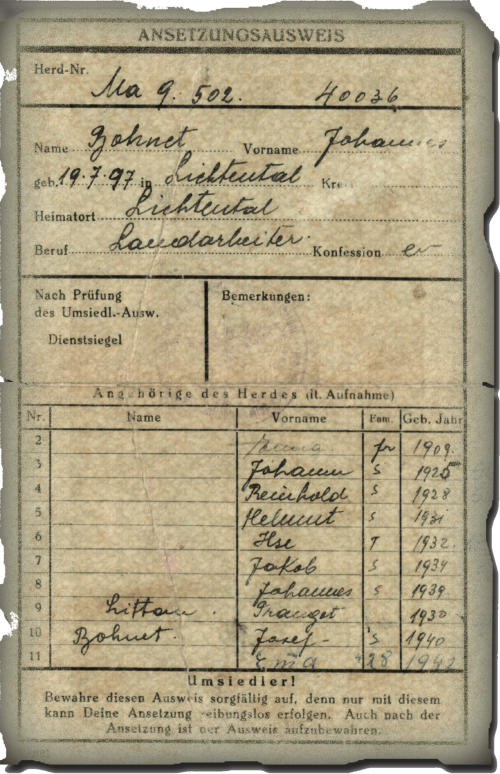 ANSETZUNGSAUSWEIS
Herd-Nr. Ma 9. 502. 40036
Name Bohnet Vorname Johannes
geb. 19.7.97 in Lichtental Kreis
Heimatort Lichtental
Beruf Landarbeiter. Konfession ev
Nach Prüfung
des Umsiedl.-Ausw.
Dienstsiegel
Bemerkungen:
Angehörige des Herdes (lt. Aufnahme)
Nr. Name Vorname Fam. Geb. Jahr
2 fr 1909.
3 Johann S 1925
4 Reinhold S 1928
5 Helmut S 1931
6 Ilse T 1932.
7 Jakob S 1934
8 Johannes S 1939.
9 1930
10 Bohnet. Josef - S 1940
11 Ema 1942
Umsiedler!
Bewahre diesen Ausweis sorgfältig auf, denn nur mit diesem
kann Deine Ansetzung reibungslos erfolgen. Auch nach der
Ansetzung ist der Ausweis aufzubewahren.